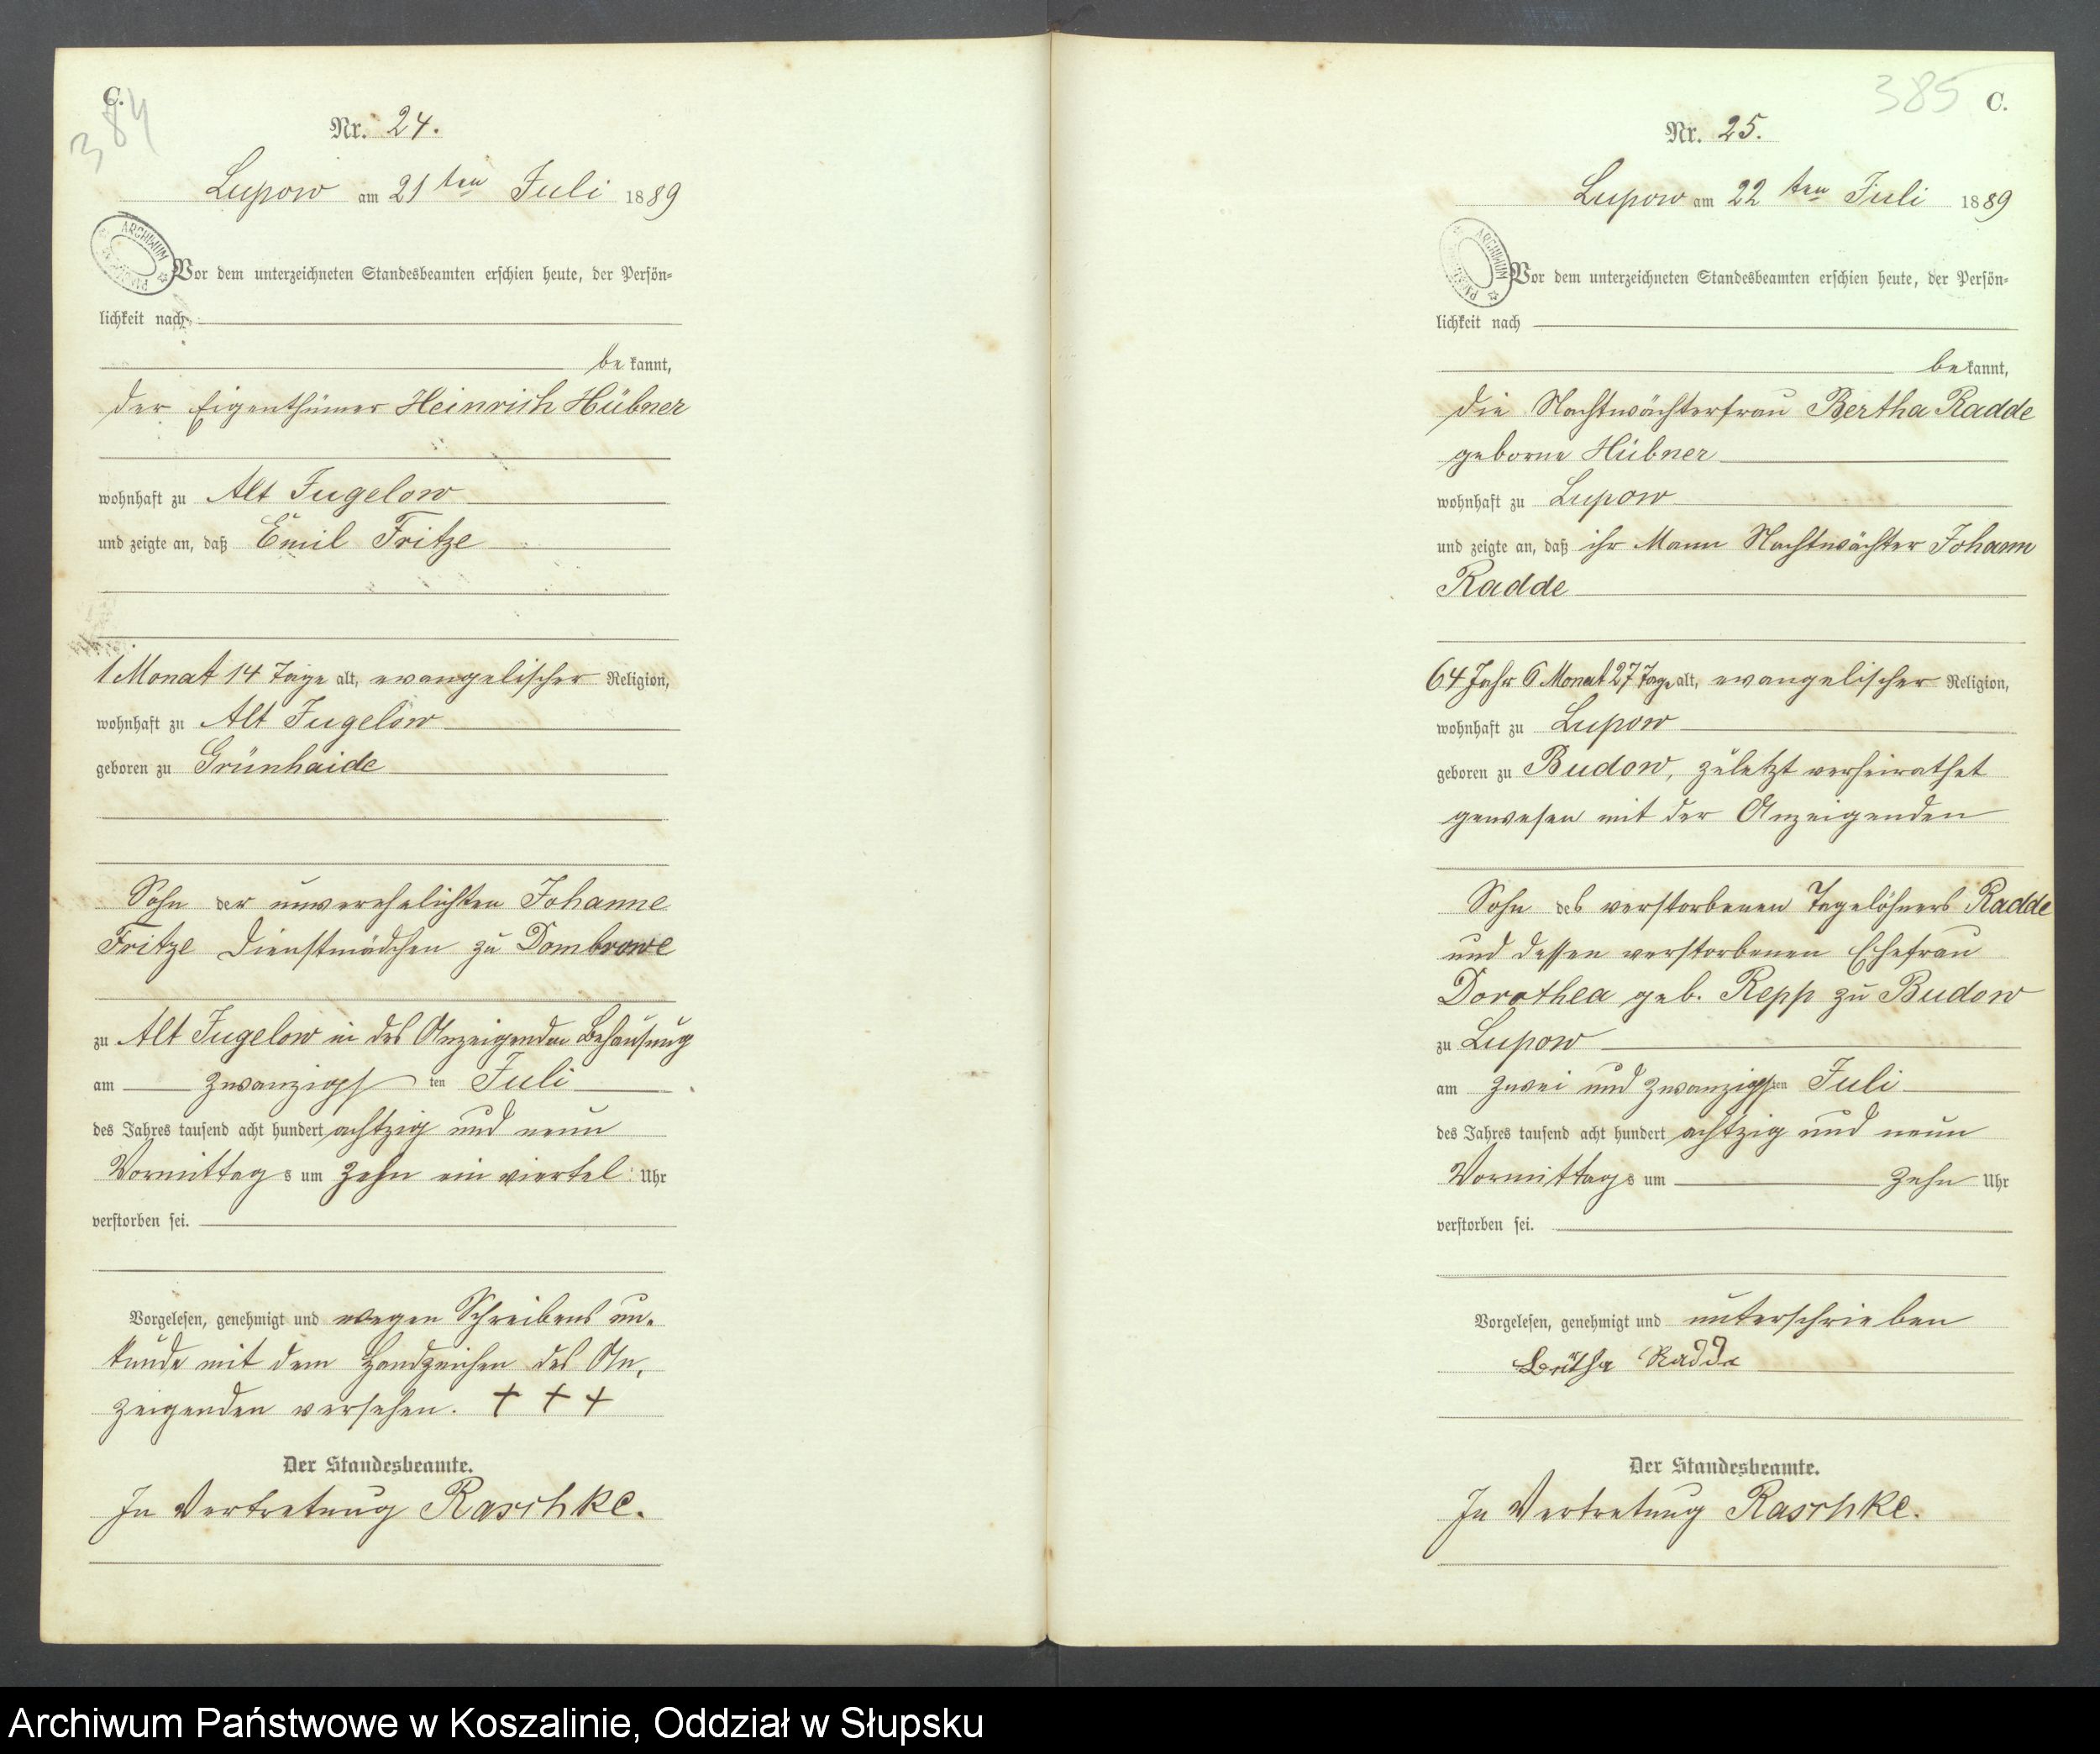 C.
384
Nr. 24.
Lupow am 21ten Juli 1889
ARCHIWUM
Vor dem unterzeichneten Standesbeamten erschien heute, der Persön-
lichkeit nach
bekannt,
der Eigenthümer Heinrich Hübner
wohnhaft zu Alt Jugelow
und zeigte an, daß Emil Fritze
1 Monat 14 Tage alt, evangelischer Religion,
wohnhaft zu Alt Jugelow
geboren zu Grünhaide
Sohn der unverehelichten Johanne
Fritze Dienstmädchen zu Dombrowe
zu Alt Jugelow in des Anzeigenden Behausung
am zwanzigsten Juli
des Jahres tausend acht hundert achtzig und neun
Vormittags um zehn ein viertel Uhr
verstorben sei.
Vorgelesen, genehmigt und wegen Schreibens un-
kunde mit dem Handzeichen des An-
zeigenden versehen. + + +
Der Standesbeamte.
In Vertretung Raschke.
385
C.
Nr. 25.
Lupow am 22ten Juli 1889
ARCHIWUM
Vor dem unterzeichneten Standesbeamten erschien heute, der Persön-
lichkeit nach
bekannt,
die Nachtwächterfrau Bertha Radde
geborne Hübner
wohnhaft zu Lupow
und zeigte an, daß ihr Mann Nachtwächter Johann
Radde
64 Jahr 6 Monat 27 Tage alt, evangelischer Religion,
wohnhaft zu Lupow
geboren zu Budow, zuletzt verheirathet
gewesen mit der Anzeigenden
Sohn des verstorbenen Tagelöhners Radde
und dessen verstorbenen Ehefrau
Dorothea geb. Repp zu Budow
zu Lupow
am zwei und zwanzigsten Juli
des Jahres tausend acht hundert achtzig und neun
Vormittags um zehn Uhr
verstorben sei.
Vorgelesen, genehmigt und unterschrieben
Bertha Radde
Der Standesbeamte.
In Vertretung Raschke.
Archiwum Państwowe w Koszalinie, Oddział w Słupsku